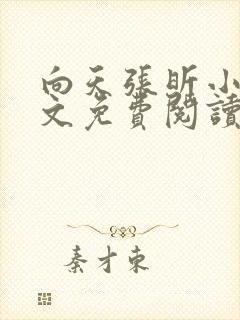 向天張昕小
文免費閱讀
秦才東